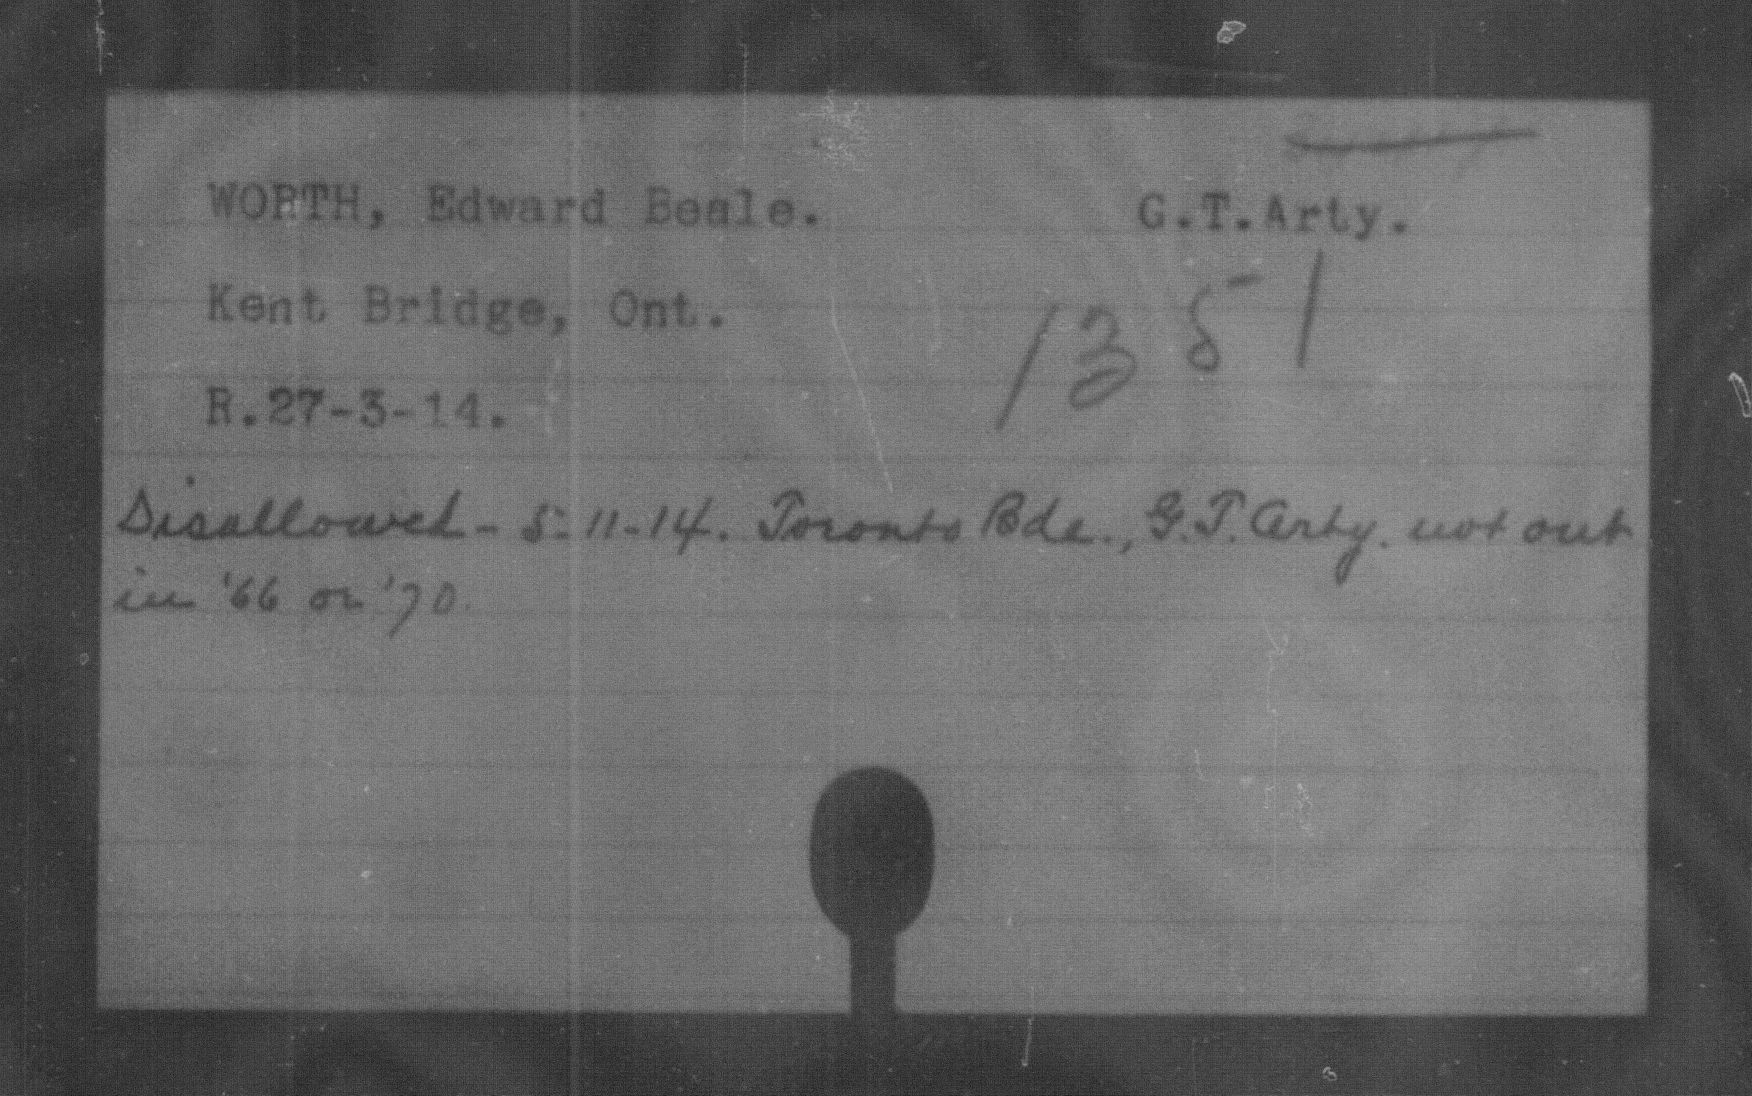 WORTH, Edward Beale. G.T.Arty.
Kent Bridge, Ont. 1351
R.27-3-14.
Disallowed - 5-11-14. Toronto Bde., G.T. Arty. not out
in '66 or '70.